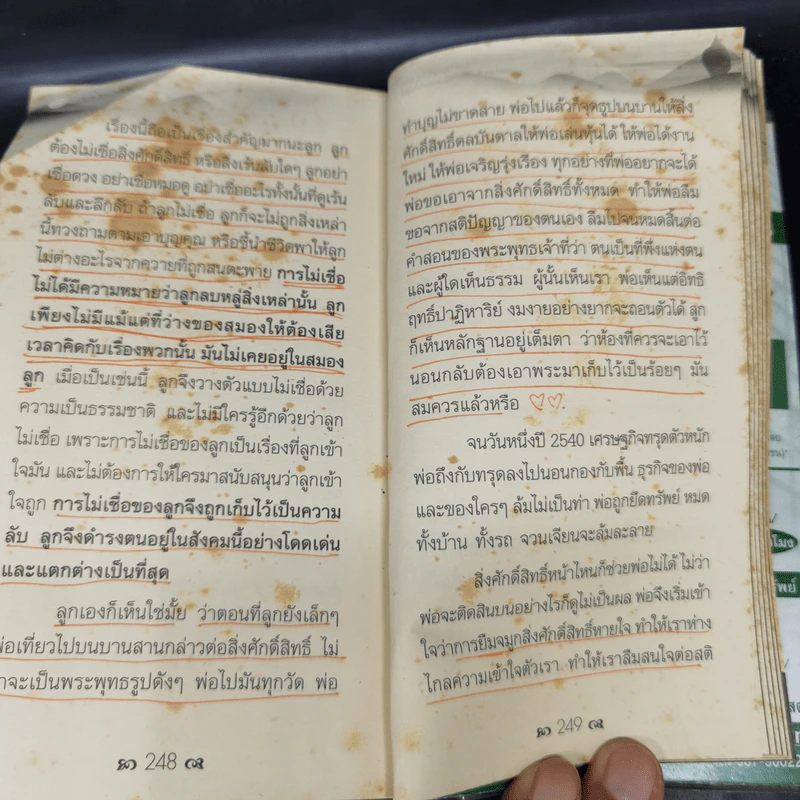 เรื่องนี้ถือเป็นเรื่องสำคัญมากนะลูก ลูก
ต้องไม่เชื่อสิ่งศักดิ์สิทธิ์ หรือสิ่งเร้นลับใดๆ ลูกอย่า
เชื่อดวง อย่าเชื่อหมอดู อย่าเชื่ออะไรทั้งนั้นที่ดูเร้น
ลับและลึกลับ ถ้าลูกไม่เชื่อ ลูกก็จะไม่ถูกสิ่งเหล่า
นี้ทวงถามตามเอาบุญคุณ หรือชี้นำชีวิตพาให้ลูก
ไม่ต่างอะไรจากควายที่ถูกสนตะพาย การไม่เชื่อ
ไม่ได้มีความหมายว่าลูกลบหลู่สิ่งเหล่านั้น ลูก
เพียงไม่มีแม้แต่ที่ว่างของสมองให้ต้องเสีย
เวลาคิดกับเรื่องพวกนั้น มันไม่เคยอยู่ในสมอง
ลูก เมื่อเป็นเช่นนี้ ลูกจึงวางตัวแบบไม่เชื่อด้วย
ความเป็นธรรมชาติ และไม่มีใครรู้อีกด้วยว่าลูก
ไม่เชื่อ เพราะการไม่เชื่อของลูกเป็นเรื่องที่ลูกเข้า
ใจมัน และไม่ต้องการให้ใครมาสนับสนุนว่าลูกเข้า
ใจถูก การไม่เชื่อของลูกจึงถูกเก็บไว้เป็นความ
ลับ ลูกจึงดำรงตนอยู่ในสังคมนี้อย่างโดดเด่น
และแตกต่างเป็นที่สุด
ลูกเองก็เห็นใช่มั้ย ว่าตอนที่ลูกยังเล็กๆ
พ่อเที่ยวไปบนบานสานกล่าวต่อสิ่งศักดิ์สิทธิ์ ไม่
ว่าจะเป็นพระพุทธรูปดังๆ พ่อไปมันทุกวัด พ่อ
248
ทำบุญไม่ขาดสาย พ่อไปแล้วก็จุดธูปบนบานให้สิ่ง
ศักดิ์สิทธิ์ดลบันดาลให้พ่อเล่นหุ้นได้ ให้พ่อได้งาน
ใหม่ ให้พ่อเจริญรุ่งเรือง ทุกอย่างที่พ่ออยากจะได้
พ่อขอเอาจากสิ่งศักดิ์สิทธิ์ทั้งหมด ทำให้พ่อลืม
ขอจากสติปัญญาของตนเอง ลืมไปจนหมดสิ้นต่อ
คำสอนของพระพุทธเจ้าที่ว่า ตนเป็นที่พึ่งแห่งตน
และผู้ใดเห็นธรรม ผู้นั้นเห็นเรา พ่อเห็นแต่อิทธิ
ฤทธิ์ปาฏิหาริย์ งมงายอย่างยากจะถอนตัวได้ ลูก
ก็เห็นหลักฐานอยู่เต็มตา ว่าห้องที่ควรจะเอาไว้
นอนกลับต้องเอาพระมาเก็บไว้เป็นร้อยๆ มัน
สมควรแล้วหรือ
จนวันหนึ่งปี 2540 เศรษฐกิจทรุดตัวหนัก
พ่อถึงกับทรุดลงไปนอนกองกับพื้น ธุรกิจของพ่อ
และของใครๆ ล้มไม่เป็นท่า พ่อถูกยึดทรัพย์ หมด
ทั้งบ้าน ทั้งรถ จวนเจียนจะล้มละลาย
สิ่งศักดิ์สิทธิ์หน้าไหนก็ช่วยพ่อไม่ได้ ไม่ว่า
พ่อจะติดสินบนอย่างไรก็ดูไม่เป็นผล พ่อจึงเริ่มเข้า
ใจว่าการยืมจมูกสิ่งศักดิ์สิทธิ์หายใจ ทำให้เราห่าง
ไกลความเข้าใจตัวเรา ทำให้เราลืมสนใจต่อสติ
249